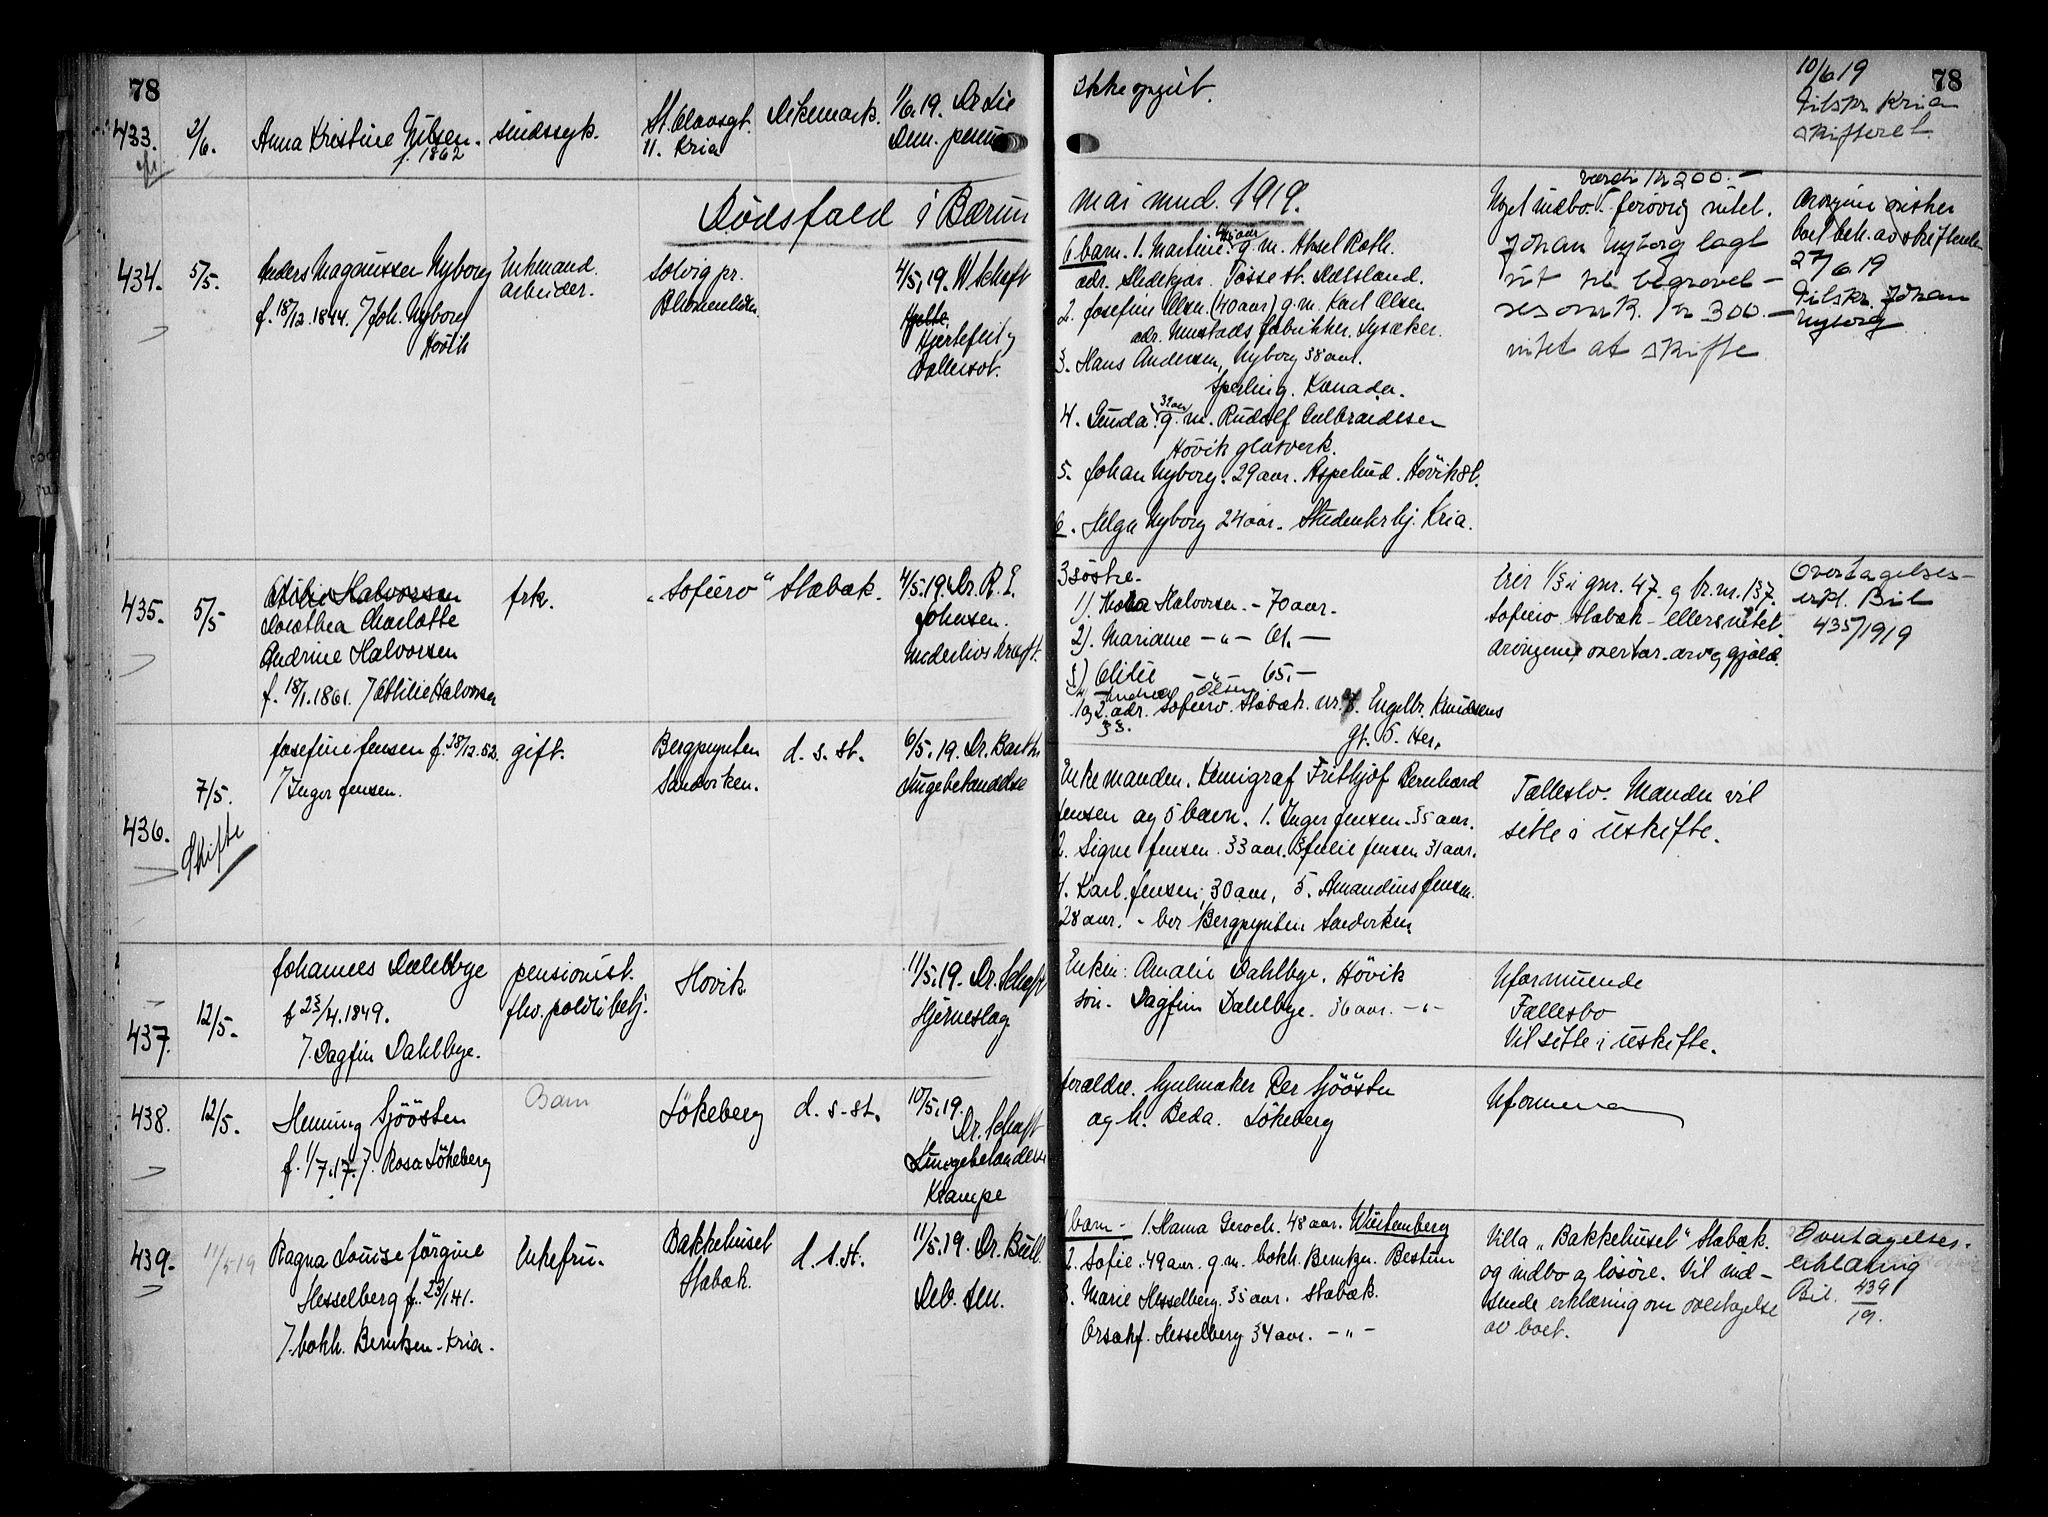 78
78
433.
2/6.
Anna Kristine Nilsen.
f. 1862
sindssyk.
St. Olavsgt.
11. Kria
Dikemark.
1/6.19. Dr Lie
Dem.
Ikke opgit.
10/6 19
Tilskr. Kria
skifteret.
Dödsfald i Bærum
mai mnd. 1919.
434.
5/5.
Anders Magnussen Nyborg
f. 18/12.1844. / Joh. Nyborg
Hövik
Enkemand.
arbeider.
Solvig pr.
Blommenholm
4/5.19. Schaft
Hjertefeil og
6 barn. 1. Martine g.m. Aksel Roth.
adr. Tosse st.
2. Josefine Olsen (40 aar) g.m. Karl Olsen
adr. Mustads fabrikker. Lysaker.
3. Hans Andersen Nyborg 38 aar.
Sperling. Kanada.
4. Gunda g.m. Rudolf Gulbrandsen
Hövik glasverk.
5. Johan Nyborg. 29 aar. Aspelund. Hövik st.
6. Helga Nyborg 24 aar. Studenterhj. Kria.
værdi kr 200.-
Noget indbo. forövrig intet.
Johan Nyborg lagt
ut til begravel-
sesomk. kr 300.-
intet at skifte
Arvingene önsker
boet beh. av skifteretten
27/6 19
Tilskr. Johan
Nyborg
435.
5/5
Dorothea Charlotte
Andrine Halvorsen
f. 18/1.1861. / Otilie Halvorsen
frk.
"Sofiero" Stabæk.
4/5.19. Dr. R. E.
Johnsen.
3 söstre-
1). Halvorsen. - 70 aar.
2). Mariane - " - 61. -
3) Otilie - " - 65. -
1 og 2. adr. Sofiero. Stabæk. Engelbr. Knudsens
gt. 5. Her.
Eier 1/3 i gnr. 47. g br.nr. 137.
Sofiero Stabæk - ellers intet.
arvingene overtar arv og gjæld.
Overtagelses-
erkl. Bil
435/1919
436.
7/5.
Skifte
Josefine Jensen f. 28/12.52.
/ Inger Jensen.
gift.
Bergpynten
Sandviken.
d. s. st.
6/5.19. Dr. Barth
Lungebetændelse
Enkemanden. Kemigraf Frithjof Bernhard
Jensen og 5 barn. 1. Inger Jensen - 35 aar.
2. Signe Jensen. 33 aar. 3 Julie Jensen 31 aar.
4. Karl Jensen, 30 aar, 5. Amandius Jensen.
28 aar. - bor Bergpynten Sandviken
Fællesbo. Manden vil
sitte i uskifte.
437.
12/5.
Johannes Dahlbye
f 23/4.1849.
/. Dagfin Dahlbye.
pensionist.
fhv. politibetj.
Hövik
11/5.19. Dr. Schaft
Hjerneslag
Enken: Amalie Dahlbye. Hövik
sön - Dagfin Dahlbye. 36 aar. - " -
Uformuende
Fællesbo
Vil sitte i uskifte.
438.
12/5.
Henning Sjöösten
f. 1/7.17. /. Rosa Lökeberg
Barn
Lökeberg
d. s. st.
10/5.19.
Dr. Schaft
Lungebetændelse
Krampe
foreldre. hjulmaker Per Sjöösten
og h. Beda. Lökeberg
Uformuen
439.
11/5 19
Ragna Louise Jörgine
Hesselberg f. 23/1 41.
/. bokh. Berntzen - Kria.
Enkefru.
Bakkehuset
Stabæk.
d. s. st.
11/5.19. Dr. Bull
Deb. sen.
barn - 1. Hanna Geroch. 48 aar. Würtemberg
2. Sofie. 49 aar. g.m. bokh. Berntzen. Bestum
3. Marie Hesselberg. 35 aar. Stabæk.
Hesselberg 34 aar. - " -
Villa "Bakkehuset" Stabæk.
og indbo og lösöre. Vil ind-
sende erklæring om overtagelse
av boet.
Overtagelses-
erklæring
Bil. 439/19.